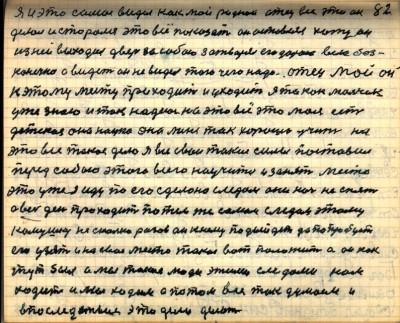 Я и это самое видел как мой родной отец все это он 82
делал и старался это всё показать он оставил хату он
из ней выходил двер за собою затворил его дорога была без-
конечно а видит он не видит того чего надо. отец мой он
к этому месту приходит и уходит я так он молчак
уже знаю и так надеюсь на это всё это моя есть
детская она наука она мине так хорошо учит на
это все такое дело я все свои такие силы поставил
перед собою этого всего научити и занят место
это уже я иду по его сделано следам они нас не спят
а вес ден проходит по тех же самых следах этому
камушку не сколка разов он к нему подойдет да попробует
его узят и на свое место такое вот положит а он как
тут был а мы такие люди этими следами нам
ходит и мы ходим а потом все так думаем и
впоследствия это дело делат